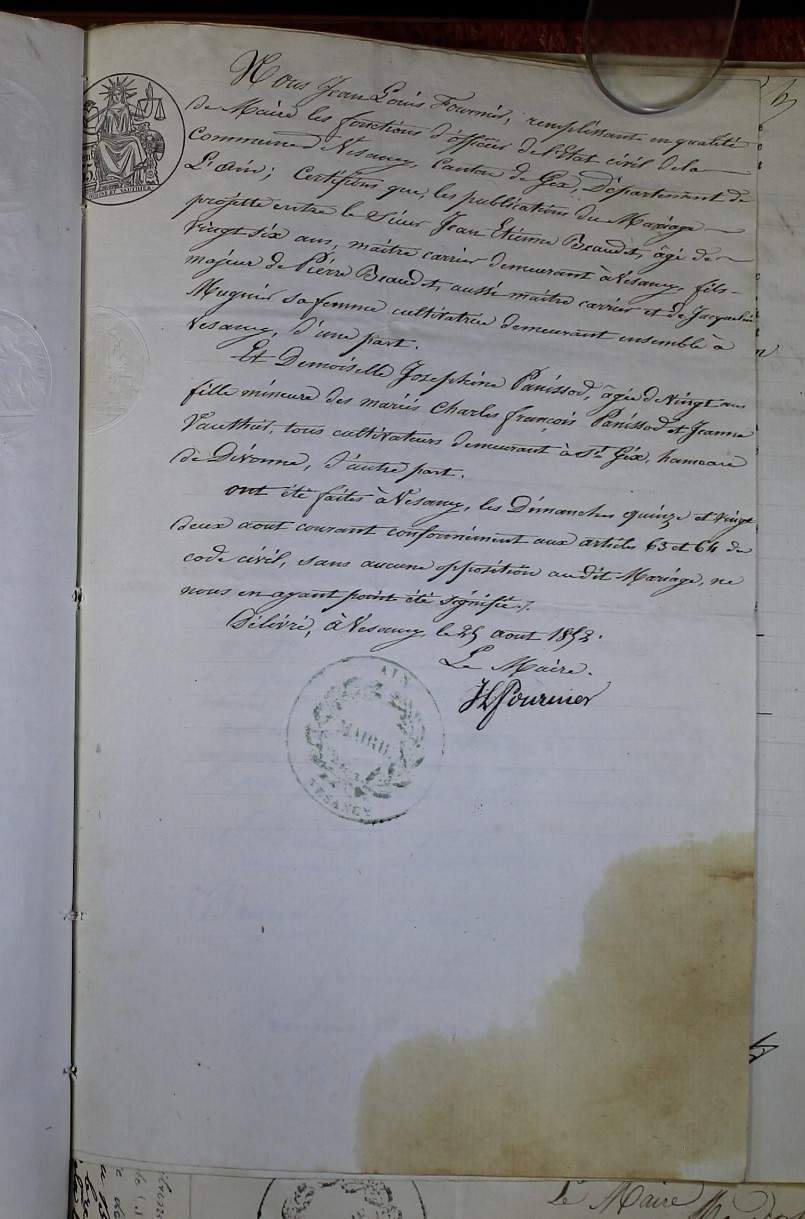 Nous Jean Louis Fournier, remplissant en qualité
de Maire les fonctions d'officier de l'état civil de la
Commune de Vesancy, Canton de Gex, Département de
L'ain; Certifions que, les publications du Mariage
projetté entre le Sieur Jean Etienne Beaudet, âgé de
vingt six ans, maitre carrier demeurant à Vesancy, fils
majeur de Pierre Beaudet, aussi maitre carrier et de Jacqueline
Mugnier sa femme cultivatrice demeurant ensemble à
Vesancy, d'une part.
Et Demoiselle Josephine Panissod, âgée de Vingt ans
fille mineure des mariés Charles françois Panissod et Jeanne
Vauthier, tous cultivateurs demeurant à St Gix, hameau
de Divonne, d'autre part.
ont été faites à Vesancy, les Dimanches quinze et vingt
deux aout courant conformément aux articles 63 et 64 du
code civil, sans aucune opposition au dit Mariage, ne
nous en ayant point été signifié./.
Délivré, à Vesancy, le 25 aout 1852.
Le Maire.
JLFournier
AIN
MAIRIE
VESANCY
Le Maire